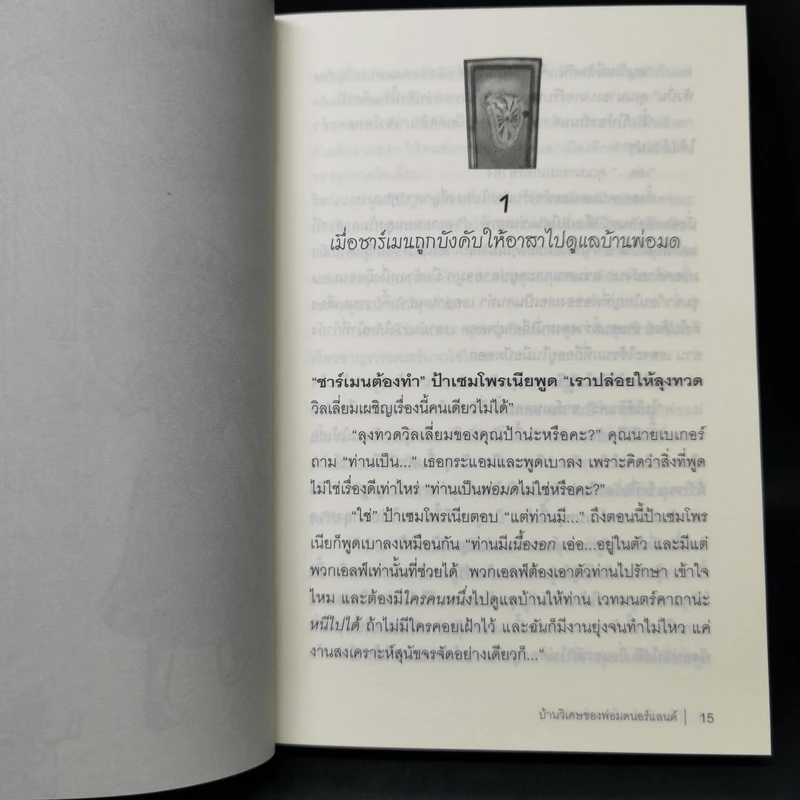 1
เมื่อชาร์เมนถูกบังคับให้อาสาไปดูแลบ้านพ่อมด
“ชาร์เมนต้องทำ” ป้าเซมโพรเนียพูด “เราปล่อยให้ลุงทวด
วิลเลี่ยมเผชิญเรื่องนี้คนเดียวไม่ได้”
“ลุงทวดวิลเลี่ยมของคุณป้าน่ะหรือคะ?” คุณนายเบเกอร์
ถาม “ท่านเป็น...” เธอกระแอมและพูดเบาลง เพราะคิดว่าสิ่งที่พูด
ไม่ใช่เรื่องดีเท่าไหร่ “ท่านเป็นพ่อมดไม่ใช่หรือคะ?”
“ใช่” ป้าเซมโพรเนียตอบ “แต่ท่านมี...” ถึงตอนนี้ป้าเซมโพร
เนียก็พูดเบาลงเหมือนกัน “ท่านมีเนื้องอก เอ่อ...อยู่ในตัว และมีแต่
พวกเอลฟ์เท่านั้นที่ช่วยได้ พวกเอลฟ์ต้องเอาตัวท่านไปรักษา เข้าใจ
ไหม และต้องมีใครคนหนึ่งไปดูแลบ้านให้ท่าน เวทมนตร์คาถาน่ะ
หนีไปได้ ถ้าไม่มีใครคอยเฝ้าไว้ และฉันก็มีงานยุ่งจนทำไม่ไหว แค่
งานสงเคราะห์สุนัขจรจัดอย่างเดียวก็...”
บ้านวิเศษของพ่อมดนอร์แลนด์ | 15